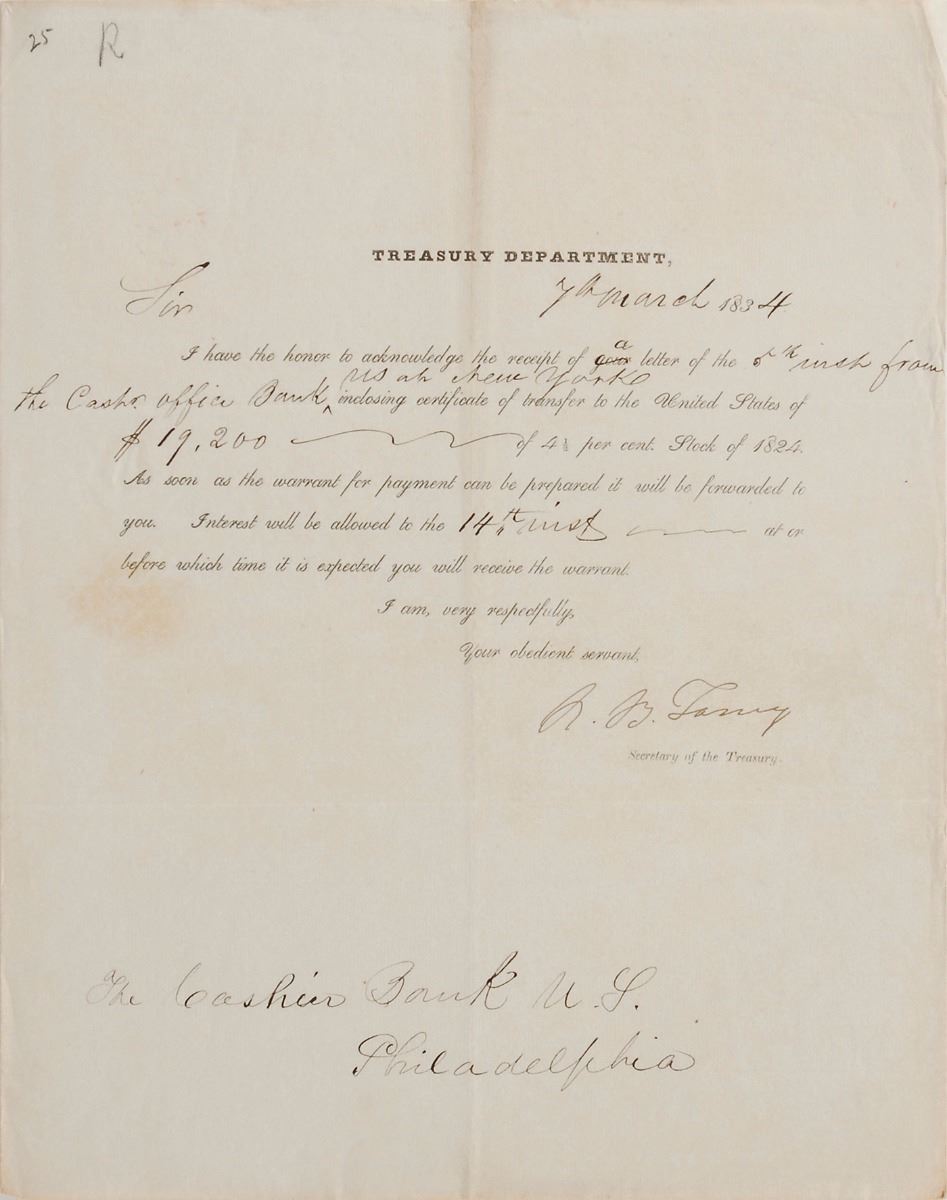 25 R
TREASURY DEPARTMENT,
7th March 1834
Sir
I have the honor to acknowledge the receipt of your a letter of the 5th inst from
US at New York
the Cashr. office Bank ‸ inclosing certificate of transfer to the United States of
$ 19,200 of 4½ per cent. Stock of 1824.
As soon as the warrant for payment can be prepared it will be forwarded to
you. Interest will be allowed to the 14th inst at or
before which time it is expected you will receive the warrant.
I am, very respectfully,
Your obedient servant,
R. B. Taney
Secretary of the Treasury.
The Cashier Bank U.S.
Philadelphia